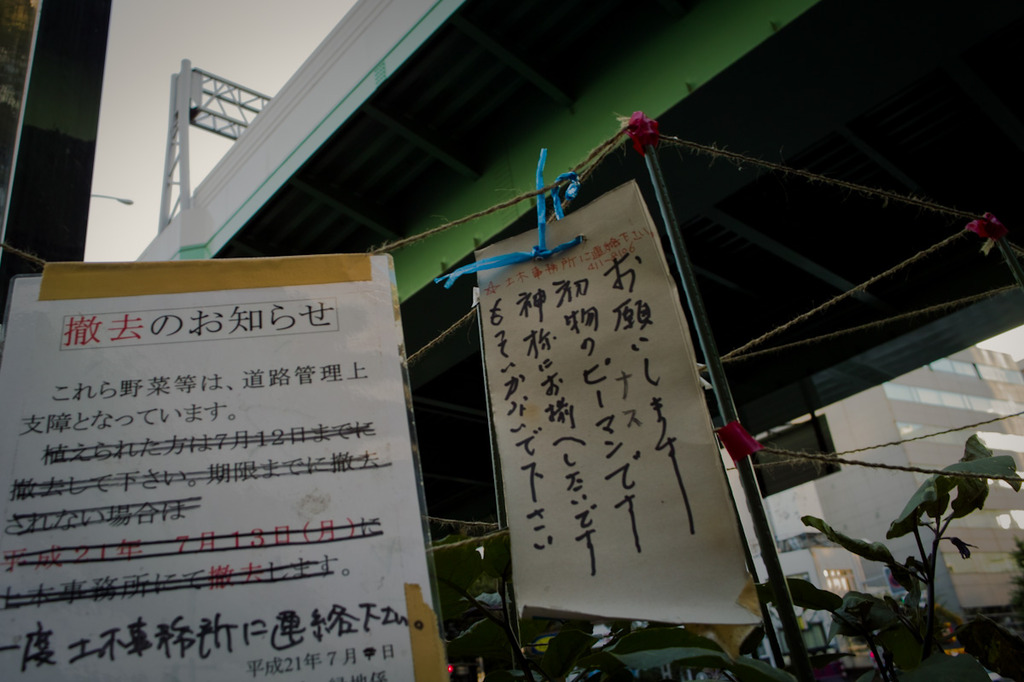 撤去のお知らせ
これら野菜等は、道路管理上
支障となっています。
植えられた方は7月12日までに
撤去して下さい。期限までに撤去
されない場合は
平成21年 7月13日(月)に
土木事務所にて撤去します。
一度土木事務所に連絡下さい。
平成21年7月 日
☆土木事務所に連絡下さい
お願いします
ナス
初物のピーマンです
神様にお揃へしたいです
もそいかないで下さい